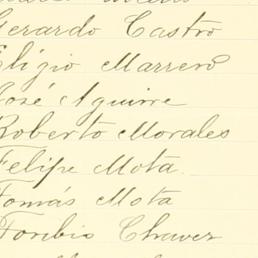 Gerardo Castro
Eligio Marrero
José Aguirre
Roberto Morales
Felipe Mota
Tomás Mota
Toribio Chavez